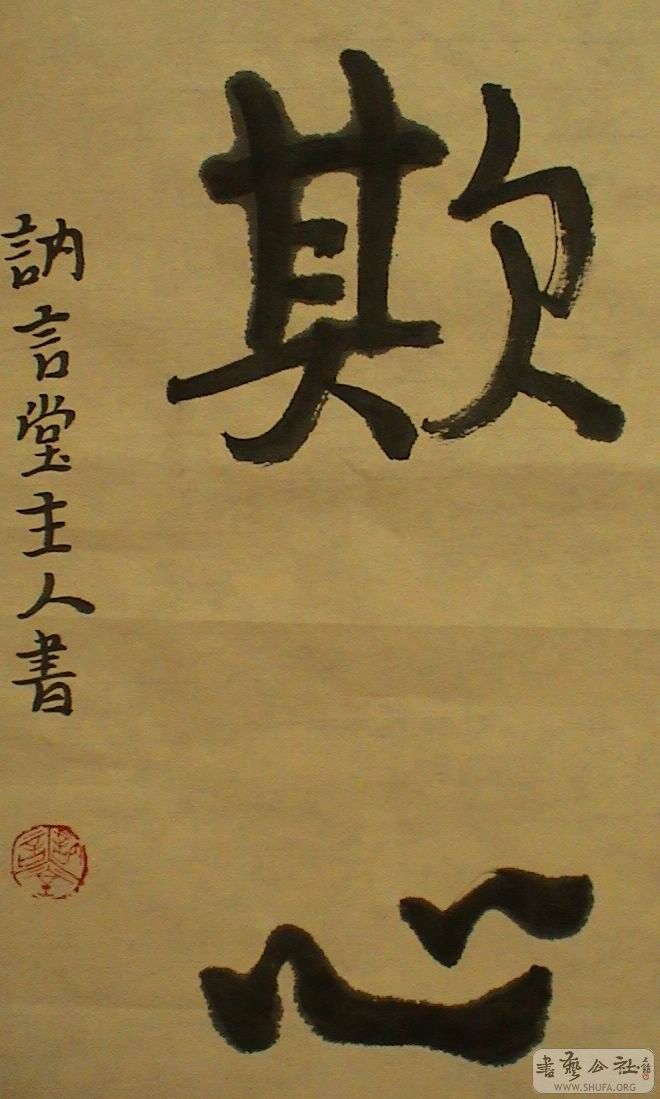 欺心
訥言堂主人書
書藝公社
WWW.SHUFA.ORG